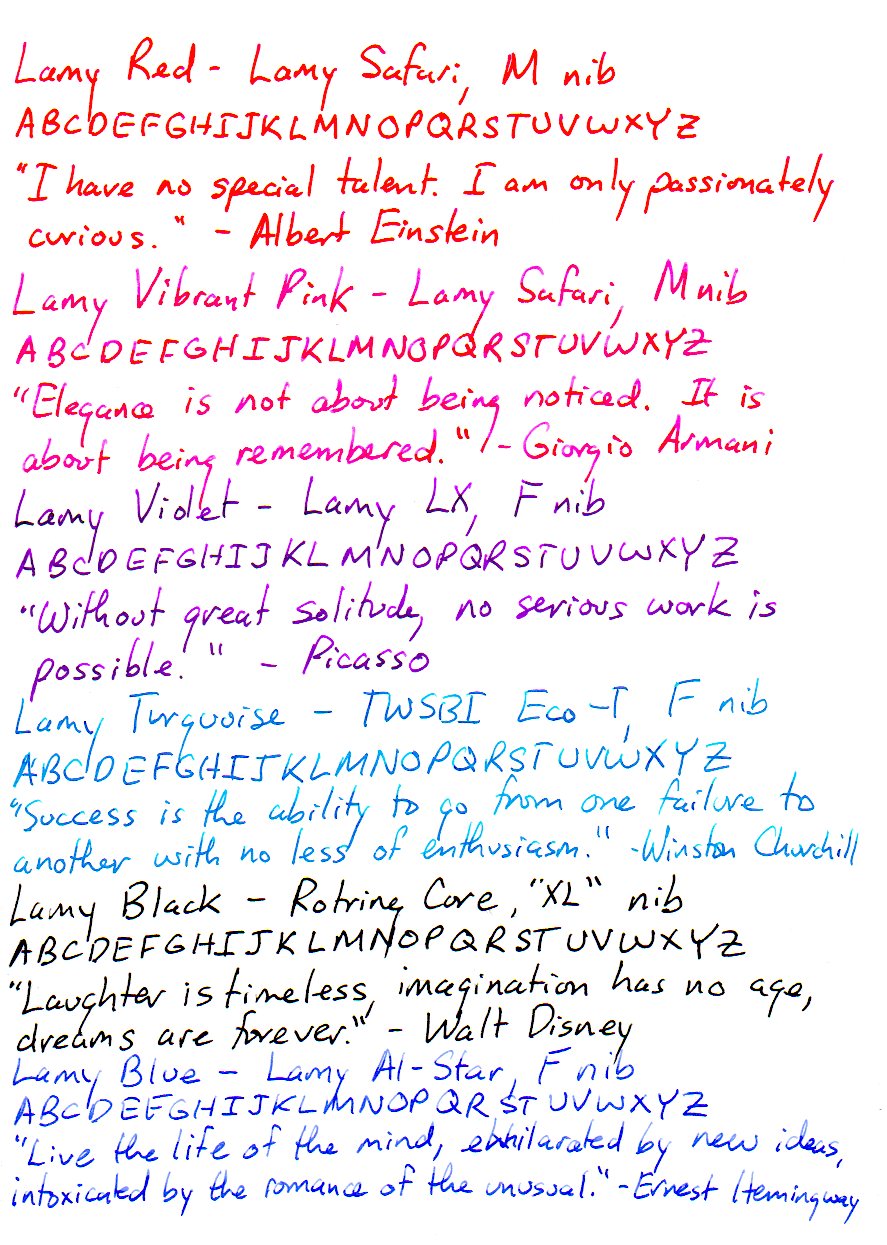 Lamy Red - Lamy Safari, M nib
ABCDEFGHIJKLMNOPQRSTUVWXYZ
"I have no special talent. I am only passionately
curious." - Albert Einstein
Lamy Vibrant Pink - Lamy Safari, M nib
ABCDEFGHIJKLMNOPQRSTUVWXYZ
"Elegance is not about being noticed. It is
about being remembered." - Giorgio Armani
Lamy Violet - Lamy LX, F nib
ABCDEFGHIJKLMNOPQRSTUVWXYZ
"Without great solitude, no serious work is
possible." - Picasso
Lamy Turquoise - TWSBI Eco-T, F nib
ABCDEFGHIJKLMNOPQRSTUVWXYZ
"Success is the ability to go from one failure to
another with no less of enthusiasm." - Winston Churchill
Lamy Black - Rotring Core, "XL" nib
ABCDEFGHIJKLMNOPQRSTUVWXYZ
"Laughter is timeless, imagination has no age,
dreams are forever." - Walt Disney
Lamy Blue - Lamy Al-Star, F nib
ABCDEFGHIJKLMNOPQRSTUVWXYZ
"Live the life of the mind, exhilarated by new ideas,
intoxicated by the romance of the unusual." - Ernest Hemingway